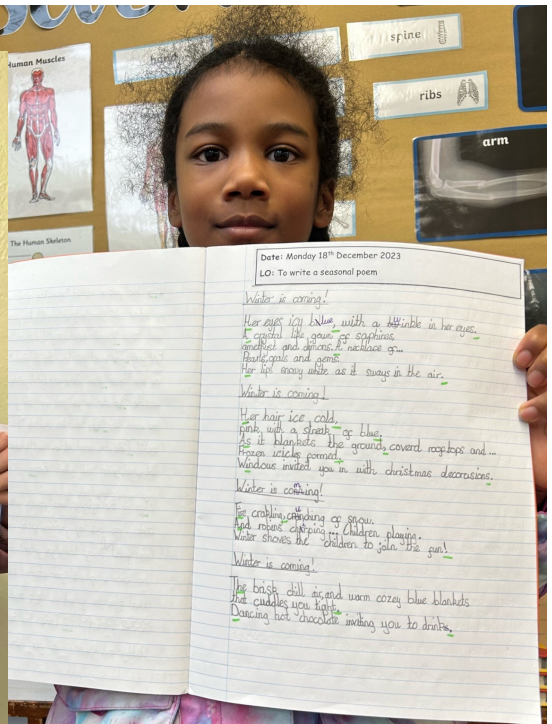 Human Muscles
hand
spine
ribs
arm
The Human Skeleton
Date: Monday 18th December 2023
LO: To write a seasonal poem
Winter is coming!
Her eyes icy blue, with a twinkle in her eyes.
A crystal like gown of saphires,
amethist and dimons. A necklace of...
Pearls, opals and gems.
Her lips snowy white as it sways in the air.
Winter is coming!
Her hair ice cold,
pink, with a streak of blue.
As it blankets the ground, coverd rooftops and...
Frozen icicles formed,
Windows invited you in with christmas decorasions.
Winter is coming!
Fire crakling, crunching of snow.
And robins chirping... Children playing.
Winter shoves the children to join the fun!
Winter is coming!
The brisk chill air, and warm cozey blue blankets
that cuddles you tight.
Dancing hot chocolate inviting you to drink.